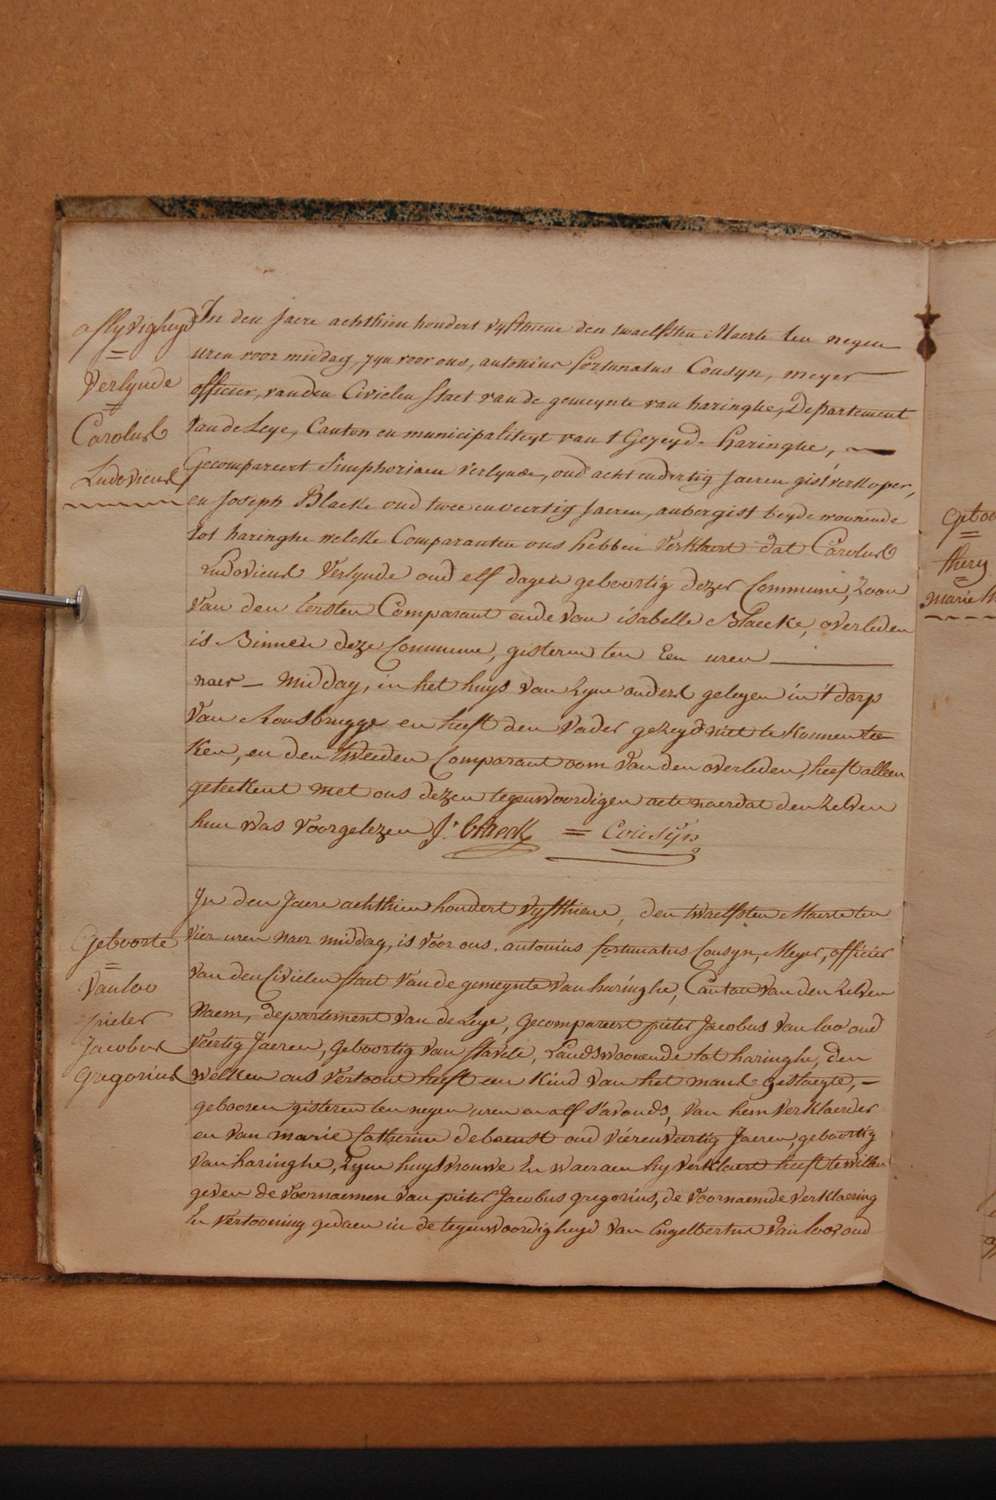 afflyvigheyd
=
Verlynde
=
Carolus
Ludovicus
In den jaere achthien hondert vyfthiene den twaelfsten Maerte ten negen
uren voor middag, zyn voor ons, antonius fortunatus Cousyn, meyer
officier, van den Civielen staet van de gemeynte van haringhe, Departement
van de Leye, Canton en municipaliteyt van 't Gezeyd haringhe,
Gecompareert Simphoriaen verlynde, oud acht en dertig jaeren gistverkoper,
en joseph Blaeke oud twee en veertig jaeren, aubergist beyde woonende
tot haringhe welcke Comparanten ons hebben verklaert dat Carolus
Ludovicus Verlynde oud elf dagen geboortig dezer Commune, zoon
van den eersten Comparant ende van isabelle Blaecke, overleden
is Binnen deze Commune, gisteren ten Een uren
naer middag, in het huys van zyne ouders gelegen in 't dorp
van Rousbrugge en heeft den vader gezeyd niet te konnen tee-
ken, en den tweeden Comparant oom van den overleden, heeft alleen
geteekent met ons dezen tegenwoordigen acte naerdat den zelven
hun was voorgelezen J: Blaeck = Cousÿn
Geboorte
=
Vanloo
pieter
Jacobus
gregorius
In den Jaere achthien hondert vyfthiene, den twaelfsten Maerte ten
vier uren naer middag, is voor ons. antonius fortunatus Cousyn, Meyer, officier
van den Civielen staet van de gemeynte van haringhe, Canton van den zelven
Naem, departement van de Leye, gecompareert pieter Jacobus van loo oud
veertig Jaeren, geboortig van stavele, Landswoonende tot haringhe, den
welken ons vertoont heeft een kind van het manl: geslagte,
gebooren gisteren ten negen uren en alf s'avonds, van hem verklaerder
en van marie Catherine debaenst oud vierenveertig Jaeren, geboortig
van haringhe, zyne huysvrouwe En waeraen hy verklaert heeft te willen
geven de voornaemen van pieter Jacobus gregorius, de voornoemde verklaering
En vertooning gedaen in de tegenwoordigheyd van Engelbertus Van loo oud
Geboo
=
marie